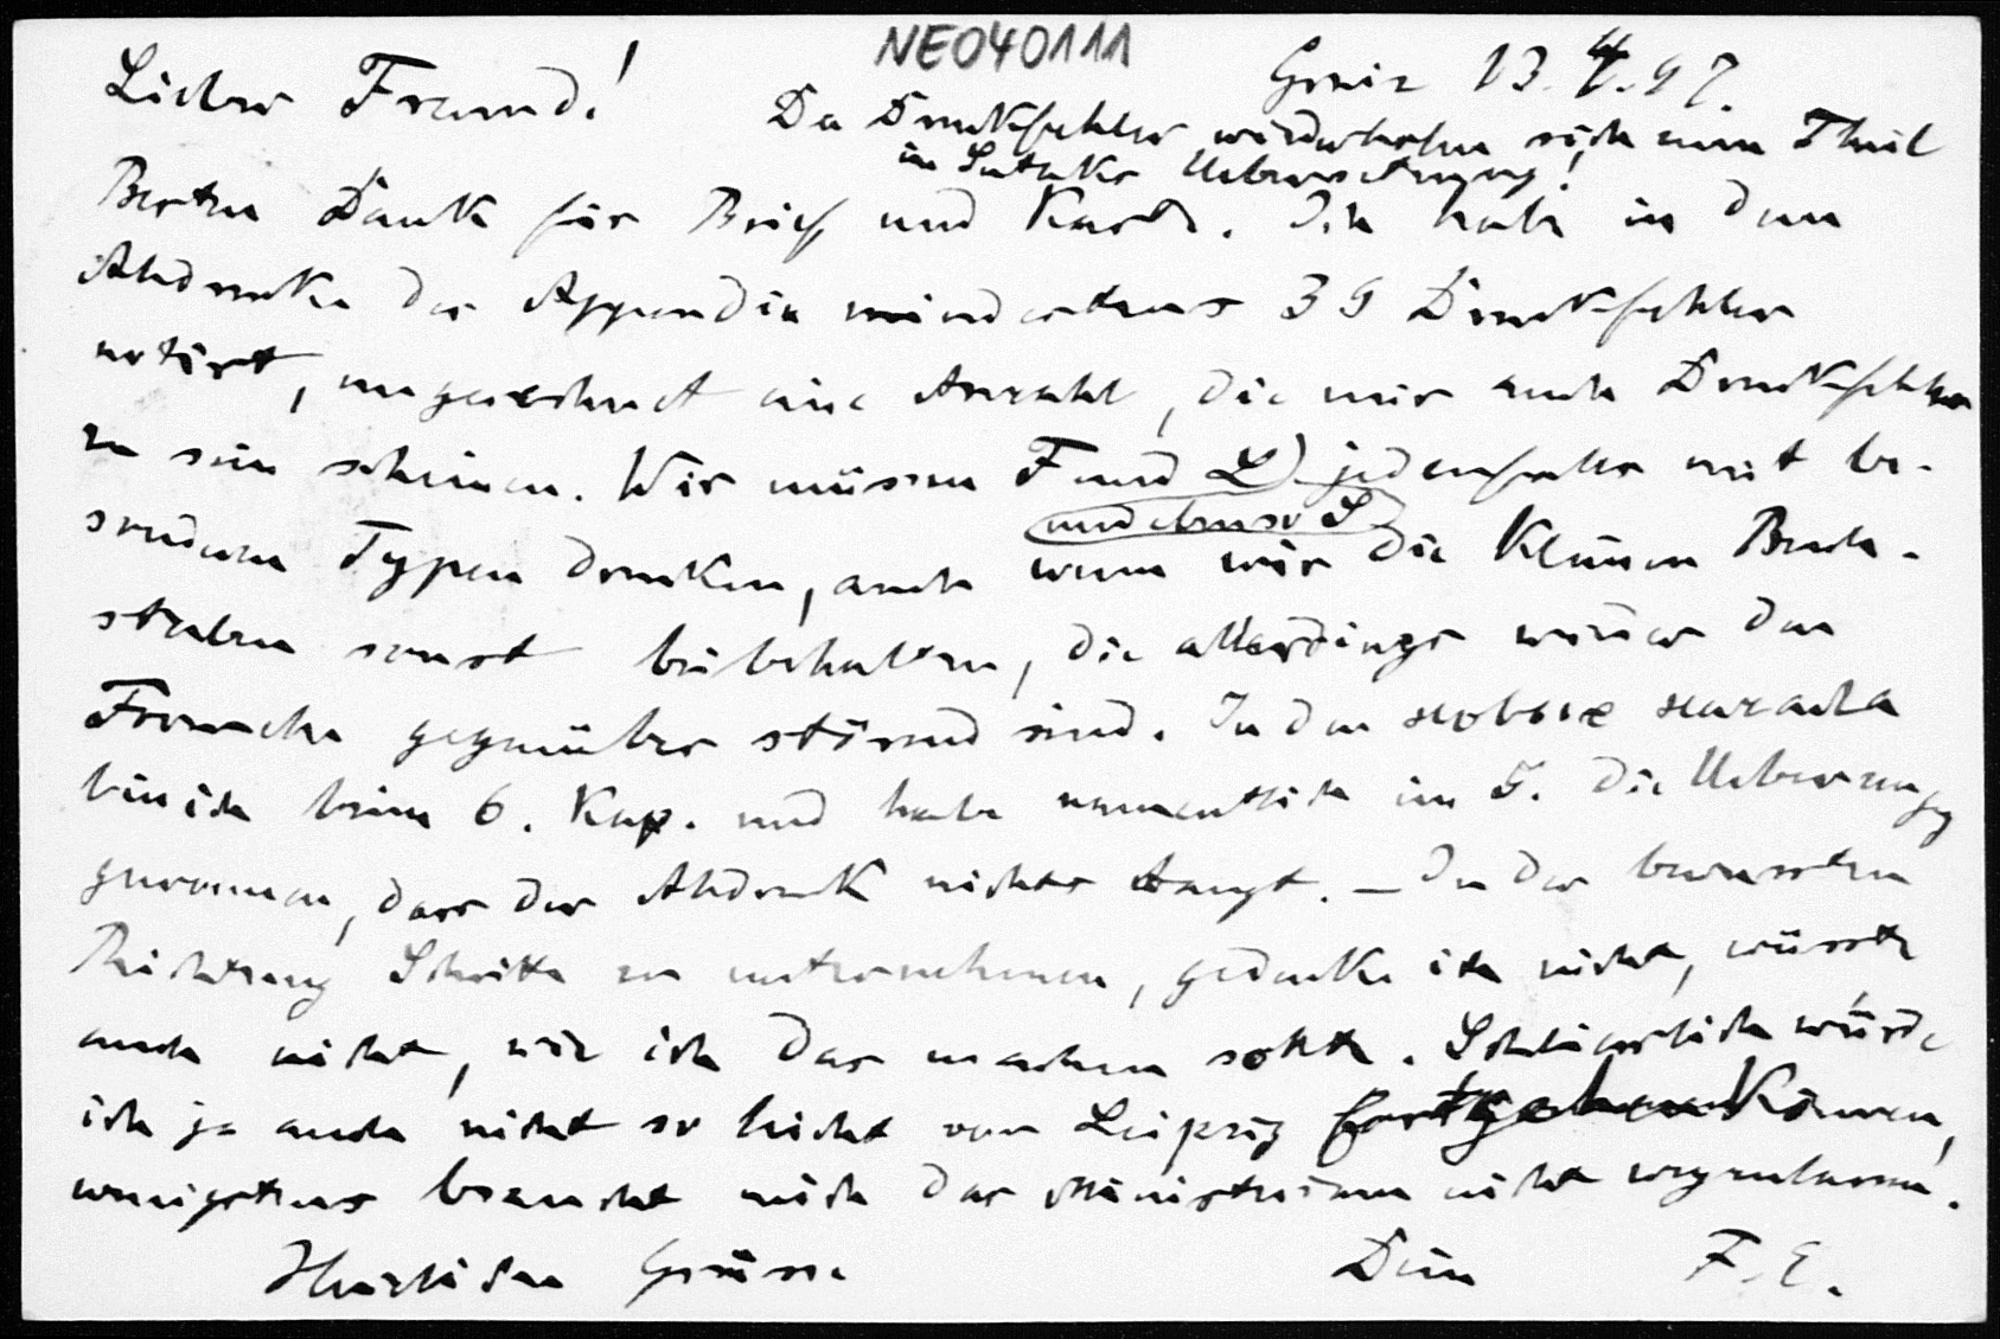 NEO40111
Lieber Freund!
Greiz 13.4.97.
Die Druckfehler wiederholen sich zum Theil
in Latakos Uebersetzung!
Besten Dank für Brief und Karte. Ich habe in dem
Abdrucke der Appendix mindestens 39 Druckfehler
notirt, ungerechnet eine Anzahl, die mir auch Druckfehler
zu sein scheinen. Wir müssen F und L jedenfalls mit be-
und ebenso S
sonderen Typen drucken, auch wenn wir die kleinen Buch-
staben sonst beibehalten, die allerdings meiner den
gegenüber störend sind. In den новыя начала
bin ich beim 6. Kap. und habe namentlich im 5. die Ueberzeugg
gewonnen, dass der Abdruck nichts taugt. — In der bewussten
Richtung Schritte zu unternehmen, gedenke ich nicht, wüsste
auch nicht, wie ich das machen sollte. Schliesslich würde
ich ja auch nicht so leicht von Leipzig fortgehen können,
wenigstens braucht mich das Ministerium nicht wegzulassen.
Herzlichen Grüsse
Dein F. E.